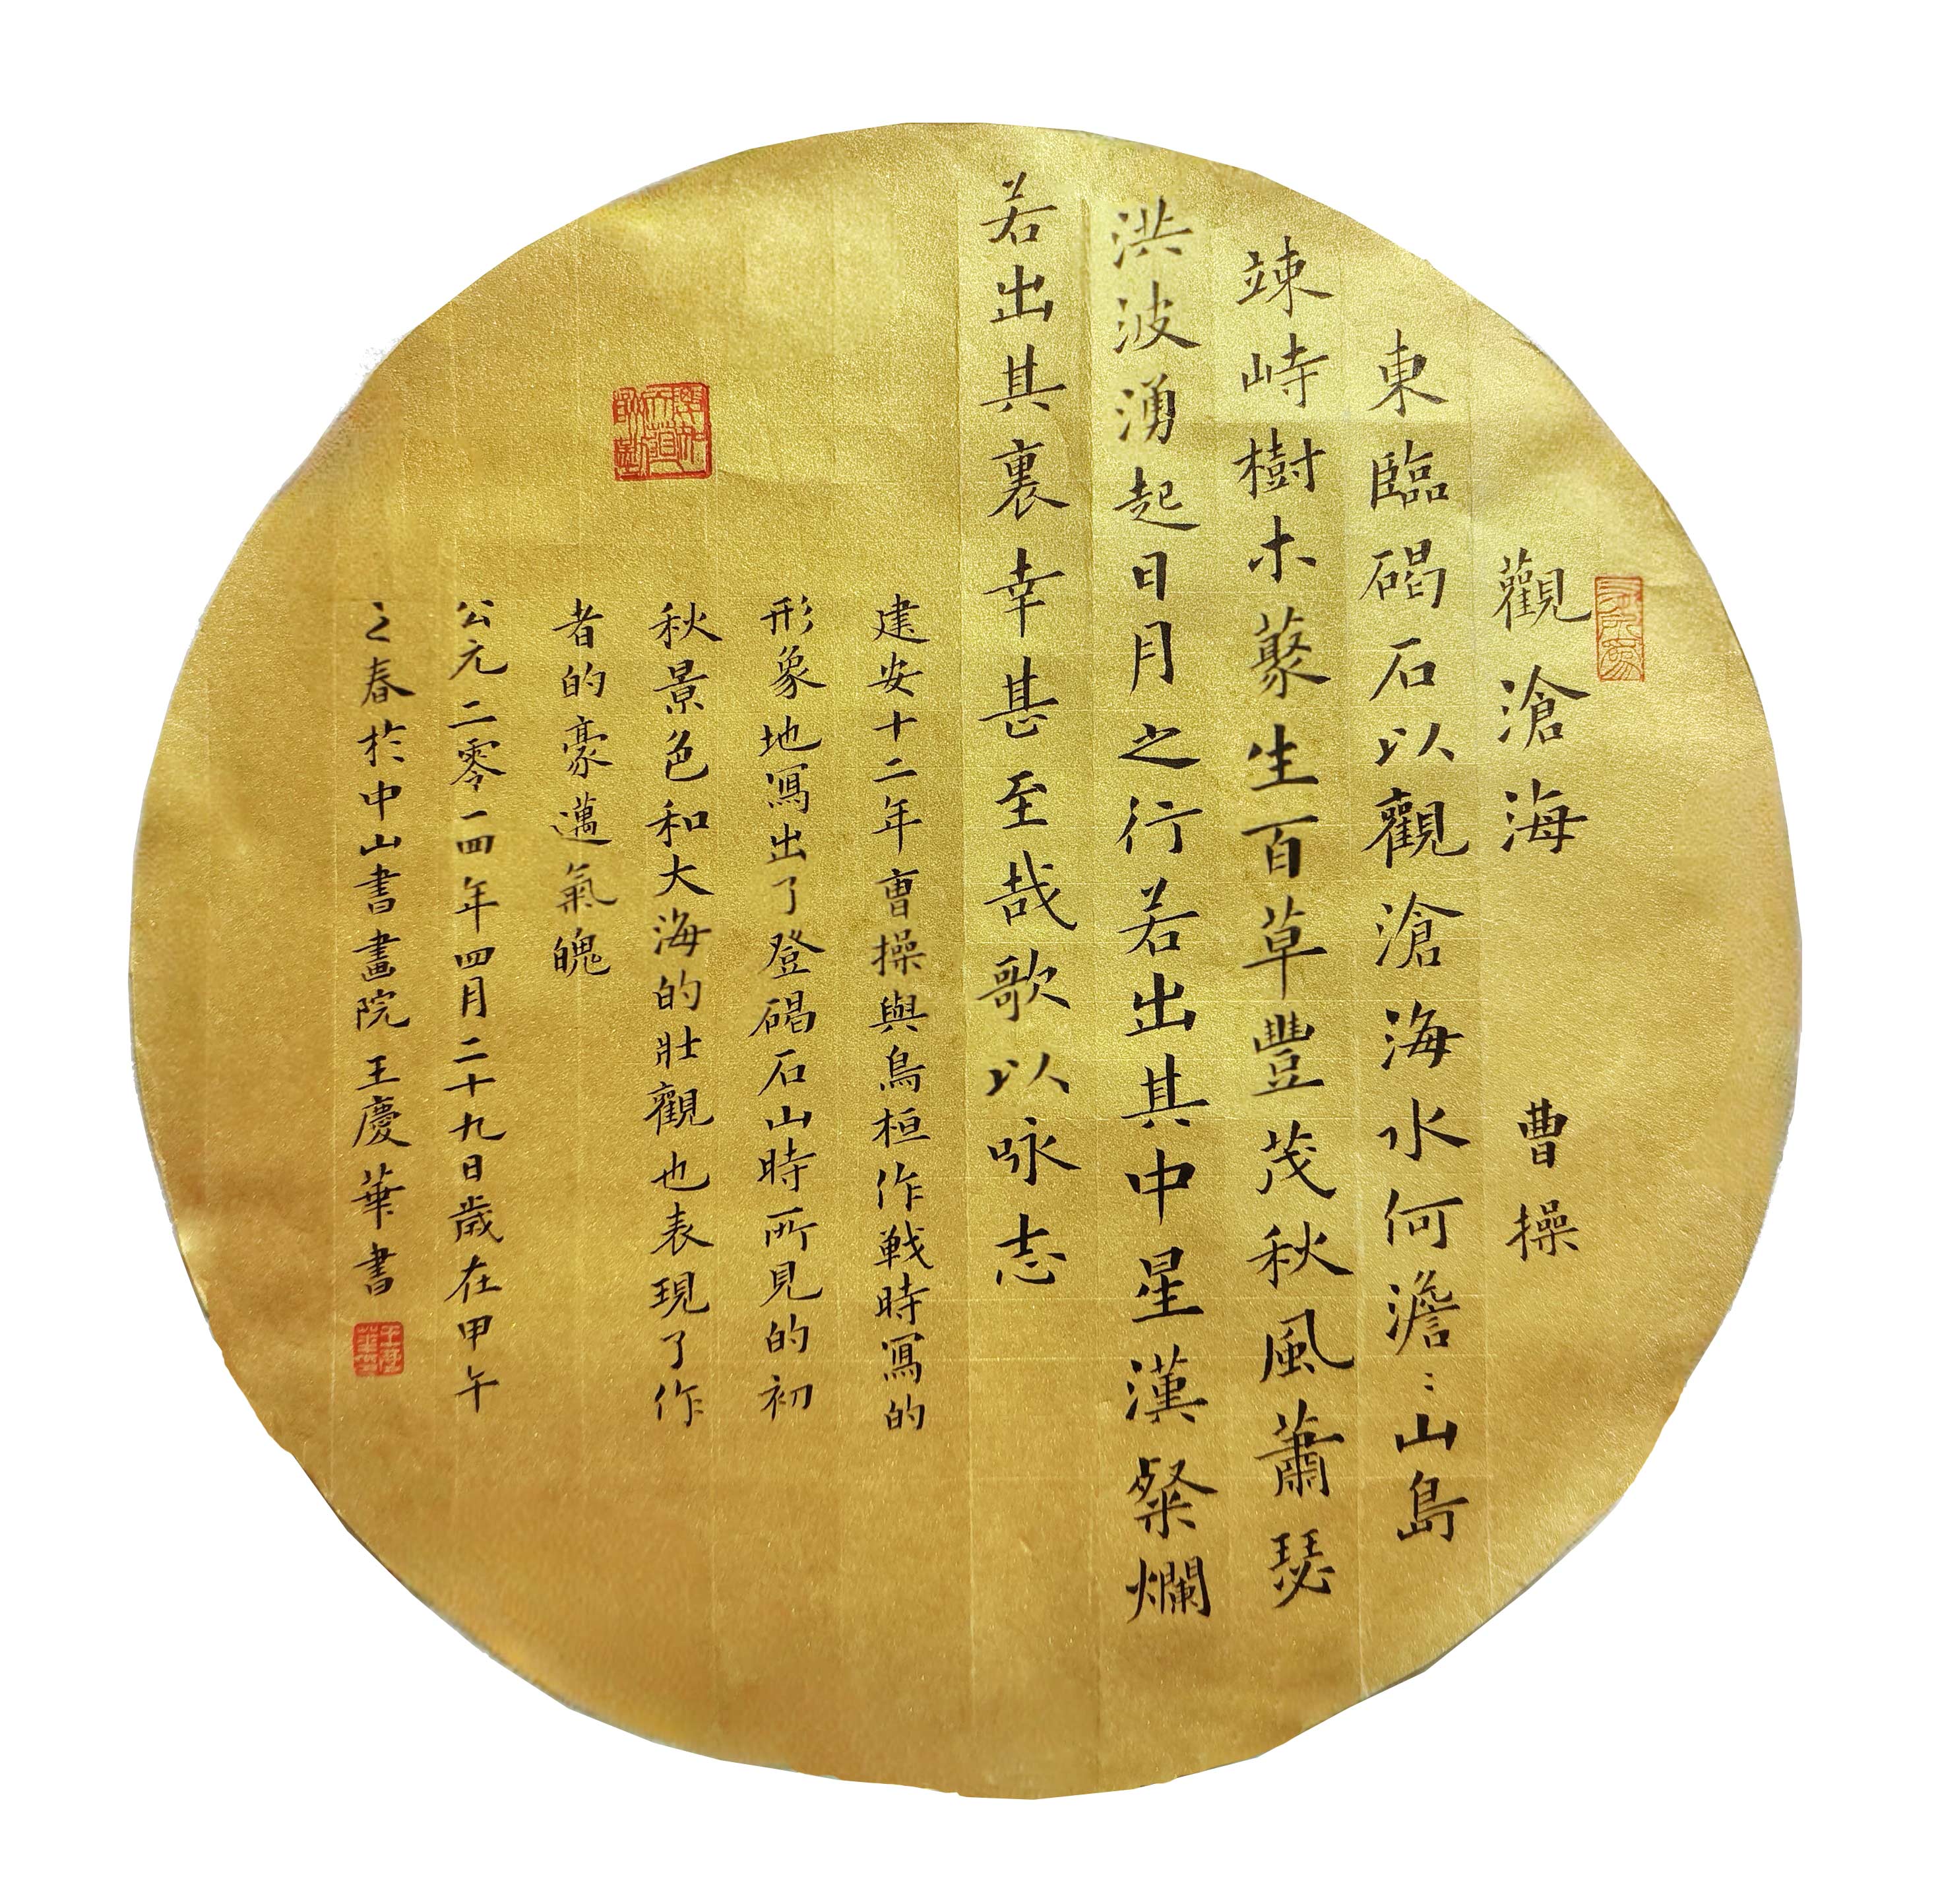 觀滄海 曹操
東臨碣石以觀滄海水何澹〻山島
竦峙樹木藂生百草豐茂秋風蕭瑟
洪波湧起日月之行若出其中星漢粲爛
若出其裏幸甚至哉歌以咏志
建安十二年曹操與烏桓作戰時寫的
形象地寫出了登碣石山時所見的初
秋景色和大海的壯觀也表現了作
者的豪邁氣魄
公元二零一四年四月二十九日歲在甲午
之春於中山書畫院王慶華書